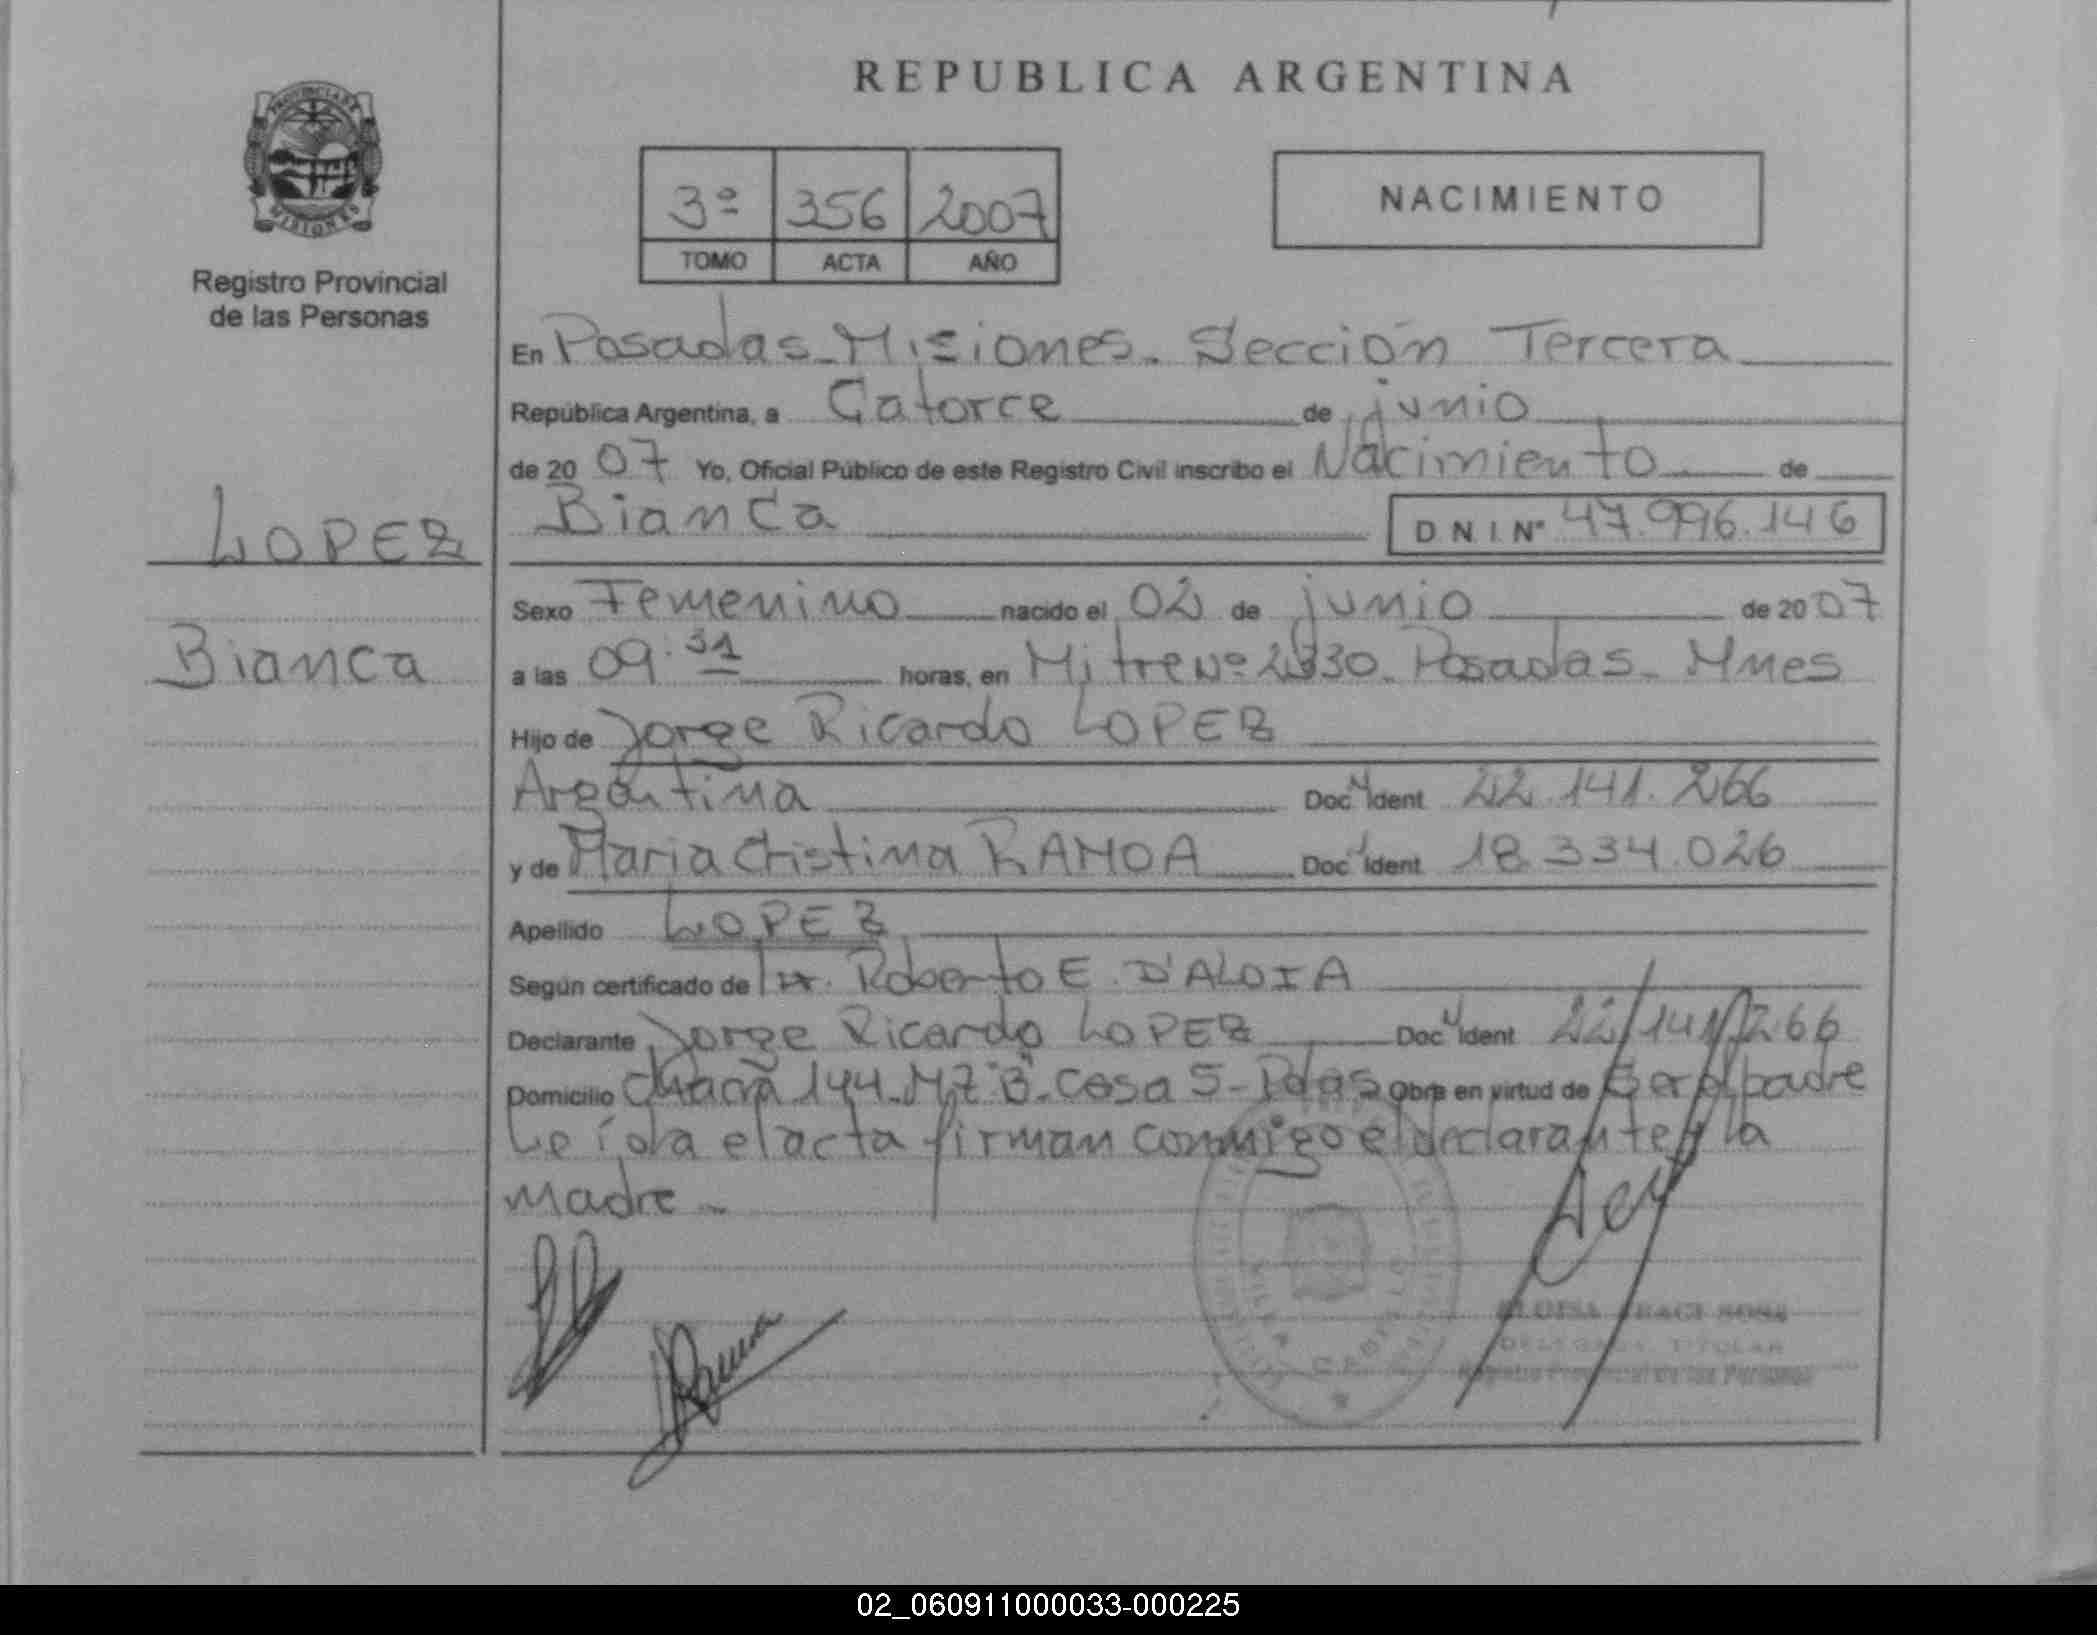 REPUBLICA ARGENTINA
PROVINCIA DE
MISIONES
Registro Provincial
de las Personas
3º 356 2007
TOMO ACTA AÑO
NACIMIENTO
En Posadas - Misiones - Sección Tercera
República Argentina, a Catorce de junio
de 20 07 Yo, Oficial Público de este Registro Civil inscribo el Nacimiento de
LOPEZ
Bianca
Bianca D N I Nº 47.996.146
Sexo Femenino nacido el 02 de junio de 20 07
a las 09:31 horas, en Mitre Nº 2330 - Posadas - Mnes
Hijo de Jorge Ricardo LOPEZ
Argentina Doc Ident 22.141.266
y de Maria Cristina RAMOA Doc Ident 18.334.026
Apellido LOPEZ
Según certificado de Dr. Roberto E. D'ALOIA
Declarante Jorge Ricardo LOPEZ Doc Ident 22.141.266
Domicilio Chacra 144 - Mz "B" - Casa 5 - Pdas Obra en virtud de Ser el padre
Leída el acta firman conmigo el declarante y la
madre -
TITULAR
Registro Provincial de las Personas
02_060911000033-000225